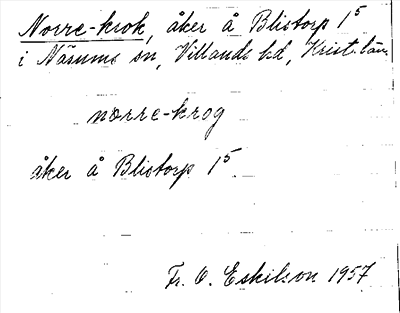 Norre-krok, åker å Blistorp 1⁵
i Näsums sn, Villands hd, Krist. län
norre-krog
åker å Blistorp 1⁵
Fr. O. Eskilson 1957